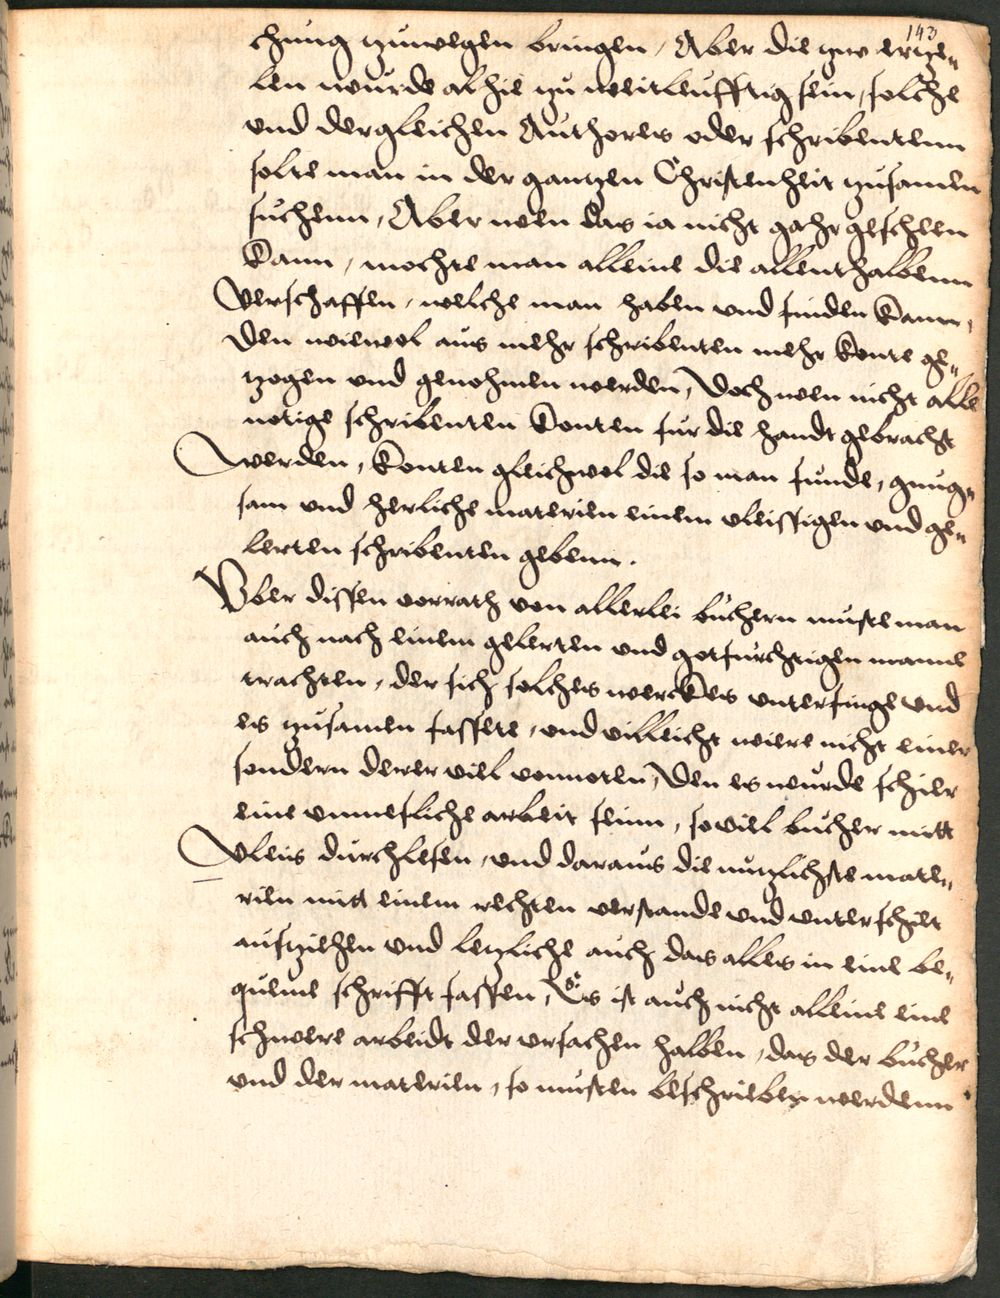 143
chung zuwegen bringen, Aber die zw erzee-
len wurde alhie zu weitleufftig sein, solche
und dergleichen Authores oder schribentenn
solte man in der gantzen Christenheit zusamen
suchenn, Aber wen das ia nicht gahr gescheen
kann, mochte man alleine die allenthalbenn
verschaffen, welche man haben und finden kann,
den wiewol aus mehr schribenten mehr konte ge-
zogen und genohmen werden, Doch wen nicht alle
notige schribenten konten fur die handt gebracht
werden, konten gleichwol die so man funde, gnug-
sam und herliche materien einem vleissigen und ge-
lerten schribenten gebenn.
Uber dissen vorrath von allerlei buchern muste man
auch nach einem gelerten und gotfurchtigen manne
trachten, der sich solches werckes unterfinge und
es zusamen fassete, und villeicht were nicht einer
sondern derer viel vonnoten, Den es wurde schier
eine unmesliche arbeit seinn, so viel bucher mitt
vleis durchlesen, und daraus die nutzlichste mate-
rien mitt einem rechten verstande und unterscheit
auszziehen und letzliche auch das alles in eine be-
queme schrifft fassen, Es ist auch nicht alleine eine
schwere arbeidt der ursachen halben, das der bucher
und der materien, so musten beschrieben werdenn